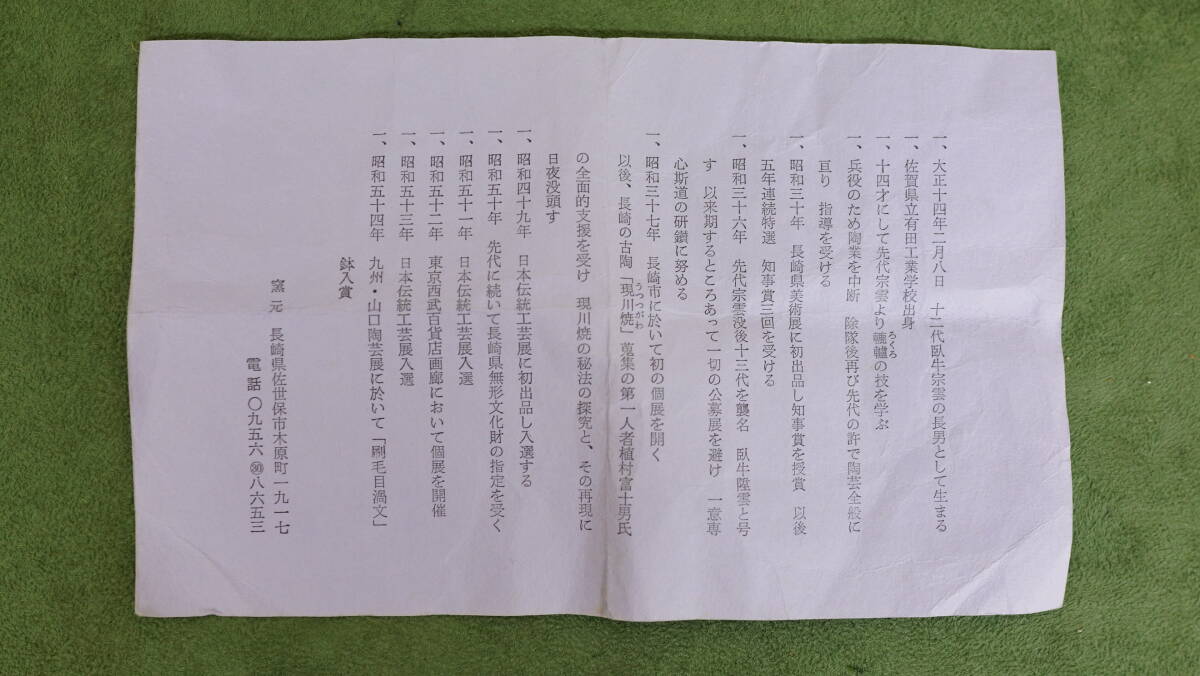 一、大正十四年二月八日　十二代臥牛宗雲の長男として生まる
一、佐賀県立有田工業学校出身
一、十四才にして先代宗雲より轆轤の技を学ぶ
ろくろ
一、兵役のため陶業を中断　除隊後再び先代の許で陶芸全般に
亘り　指導を受ける
一、昭和三十年　長崎県美術展に初出品し知事賞を授賞　以後
五年連続特選　知事賞三回を受ける
一、昭和三十六年　先代宗雲没後十三代を襲名　臥牛陞雲と号
す　以来期するところあって一切の公募展を避け　一意専
心斯道の研鑽に努める
一、昭和三十七年　長崎市に於いて初の個展を開く
以後、長崎の古陶「現川焼」蒐集の第一人者植村富士男氏
うつつがわ
の全面的支援を受け　現川焼の秘法の探究と、その再現に
日夜没頭す
一、昭和四十九年　日本伝統工芸展に初出品し入選する
一、昭和五十年　先代に続いて長崎県無形文化財の指定を受く
一、昭和五十一年　日本伝統工芸展入選
一、昭和五十二年　東京西武百貨店画廊において個展を開催
一、昭和五十三年　日本伝統工芸展入選
一、昭和五十四年　九州・山口陶芸展に於いて「刷毛目渦文」
鉢入賞
窯元　長崎県佐世保市木原町一九一七
電話〇九五六㉚八六五三